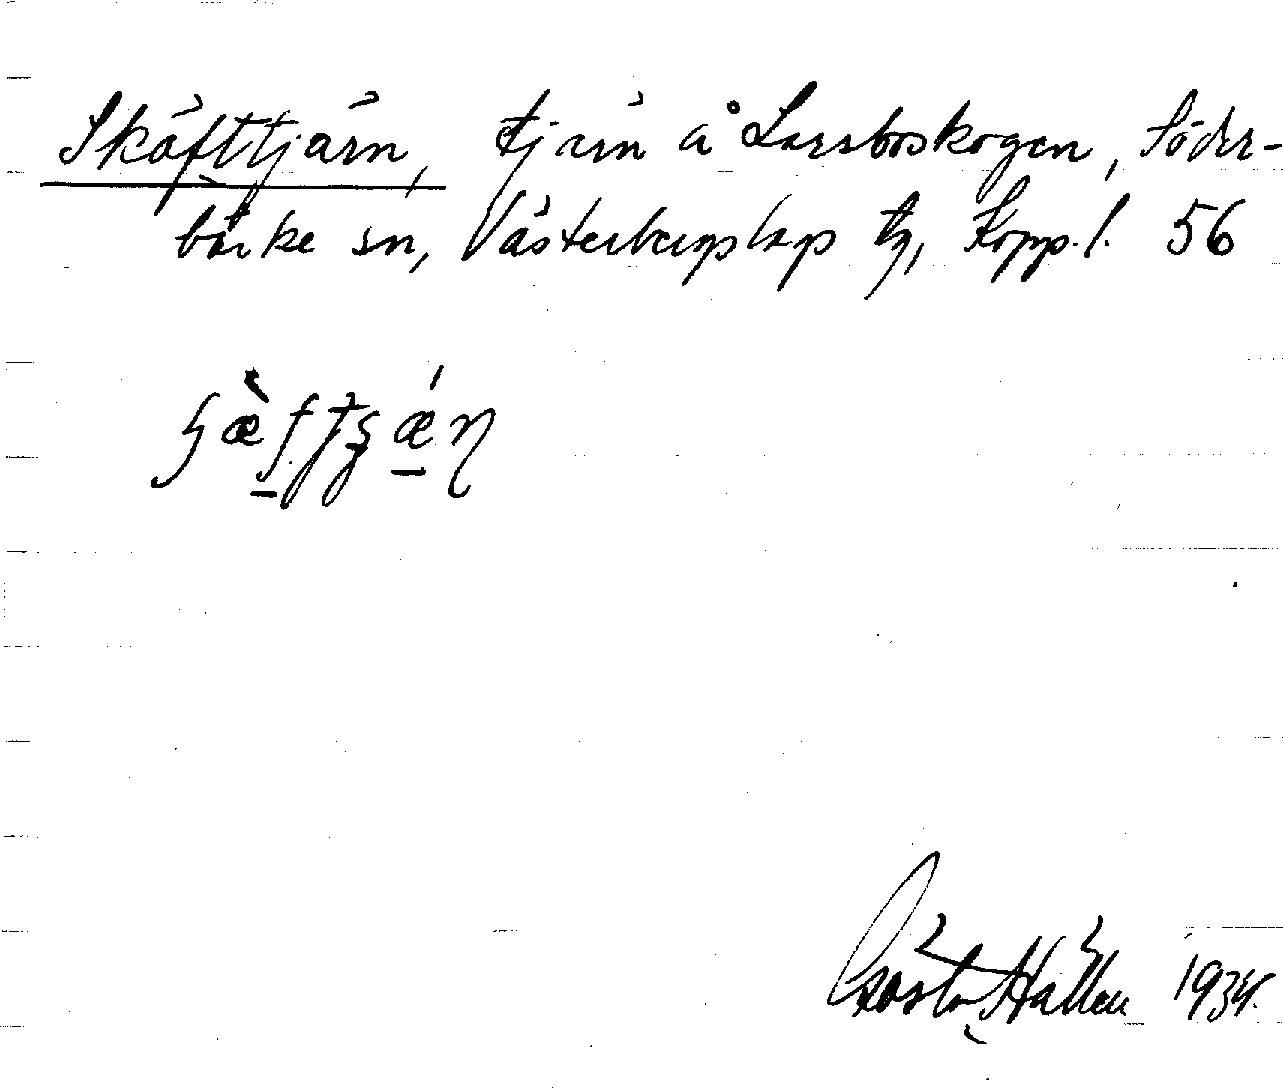 Skäfttjärn, tjärn å Larsboskogen, Söder-
bärke sn, Västerbergslags tg, Kopp. l. 56
Gösta Hallén 1934.